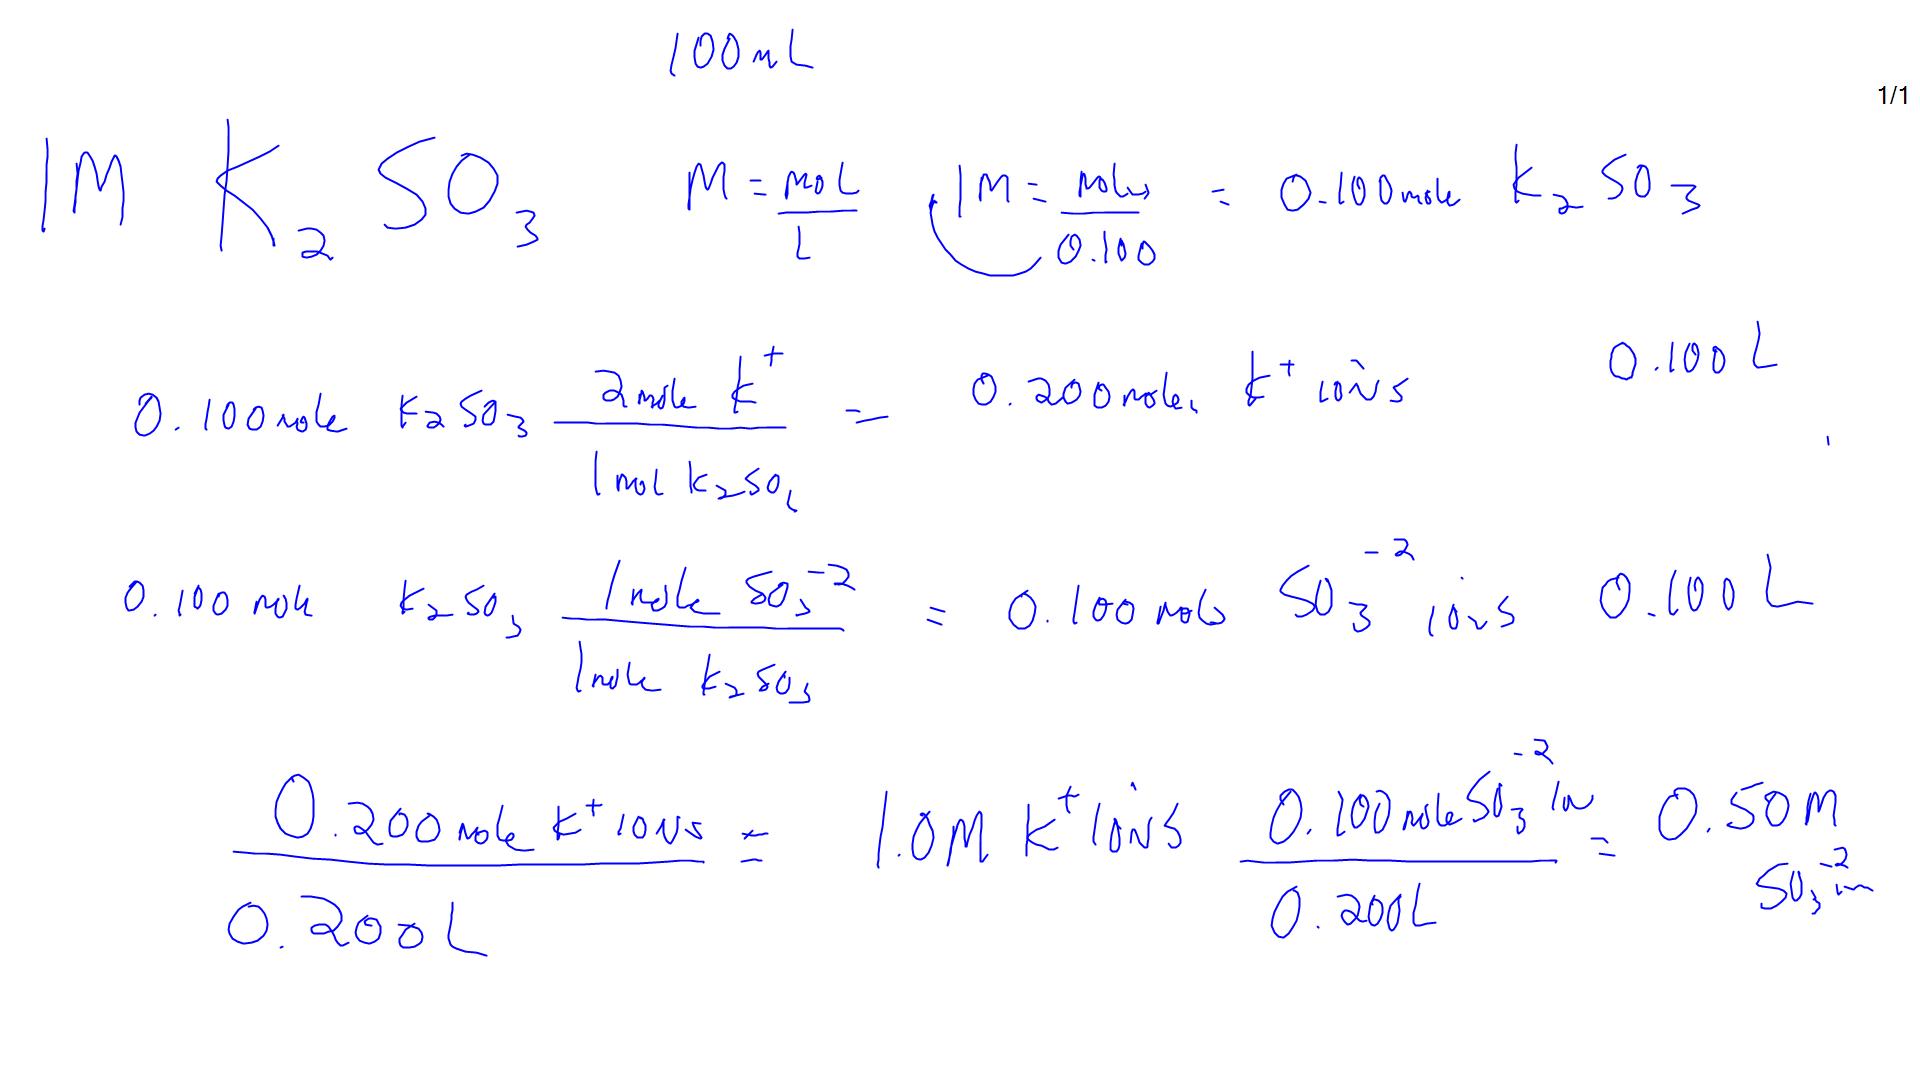 100mL
1/1
1M K₂SO₃ M = mol/L 1M = moles/0.100 = 0.100mole K₂SO₃
0.100mole K₂SO₃ 2mole K⁺/1mol K₂SO₃ = 0.200moles K⁺ ions 0.100L
0.100 mole K₂SO₃ 1mole SO₃⁻²/1mole K₂SO₃ = 0.100 mols SO₃⁻² ions 0.100L
0.200mole K⁺ ions/0.200L = 1.0M K⁺ ions 0.100mole SO₃⁻² ion/0.200L = 0.50M
SO₃⁻² ion